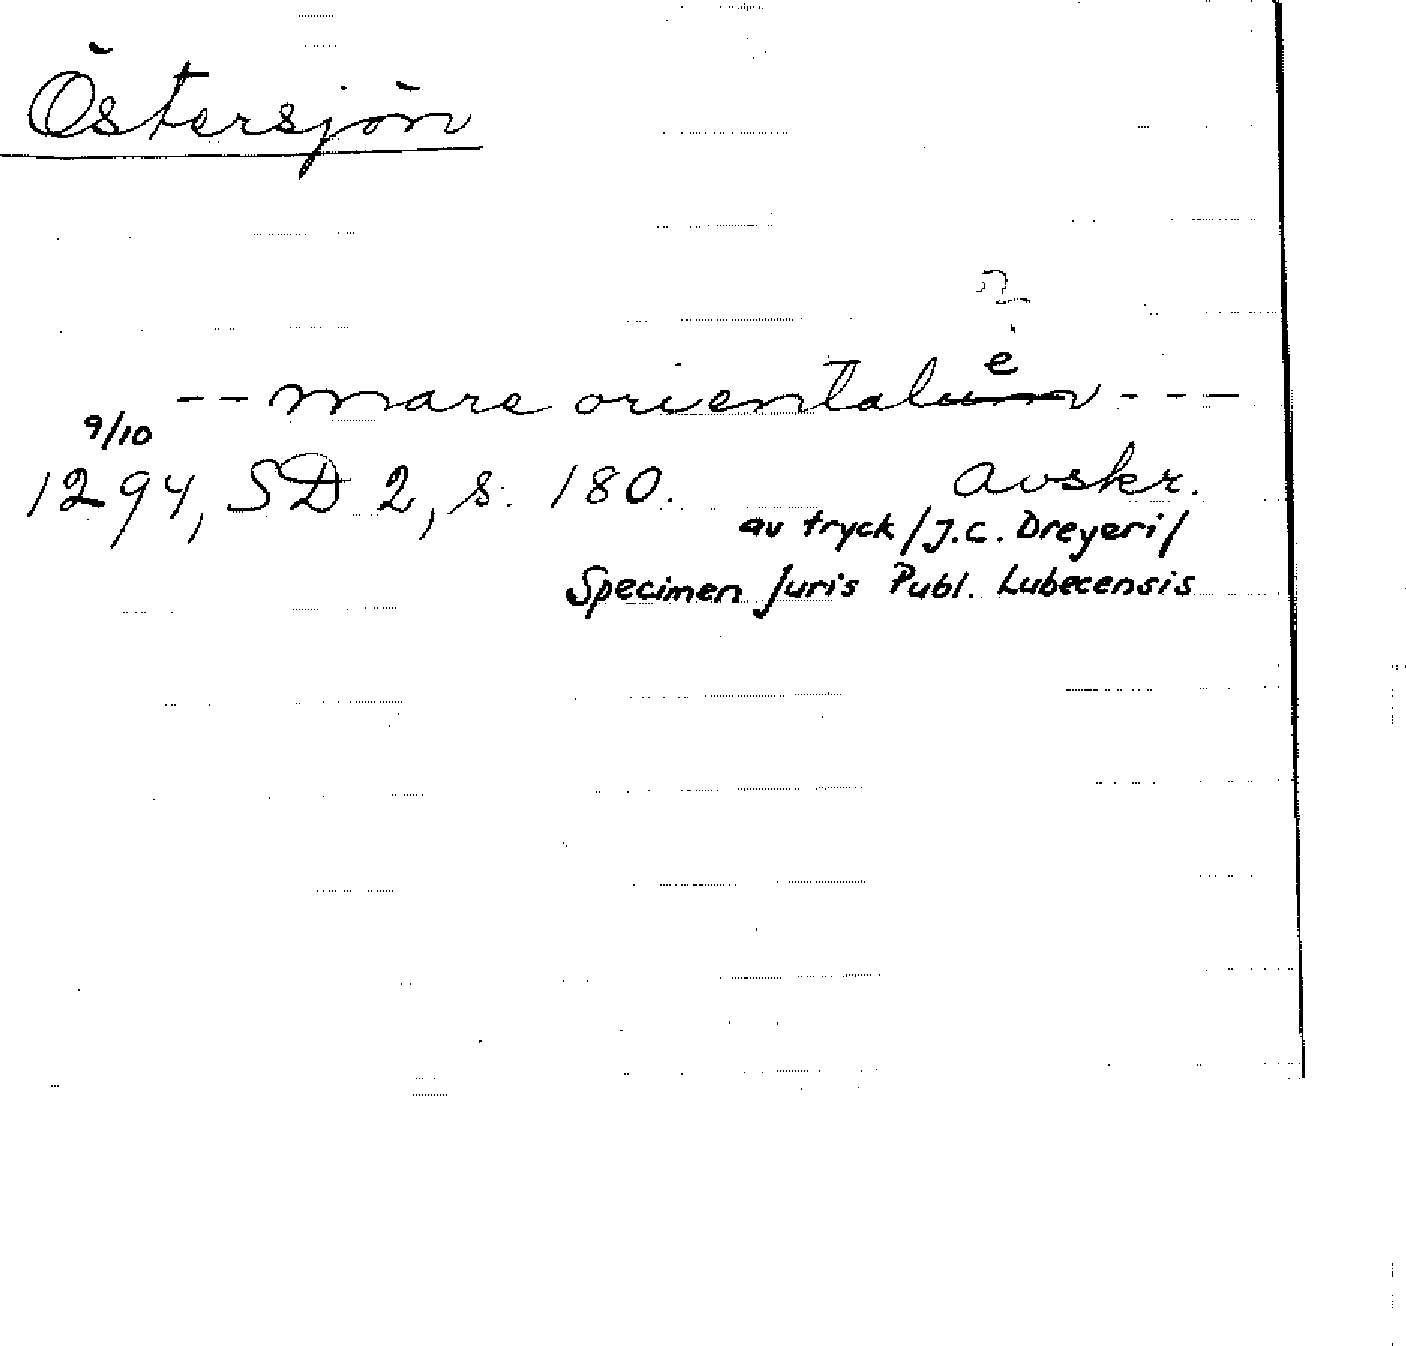 Östersjön
-- mare orientale ---
9/10
1294, SD 2, s. 180. avskr.
av tryck /J.C. Dreyeri/
Specimen Juris Publ. Lubecensis